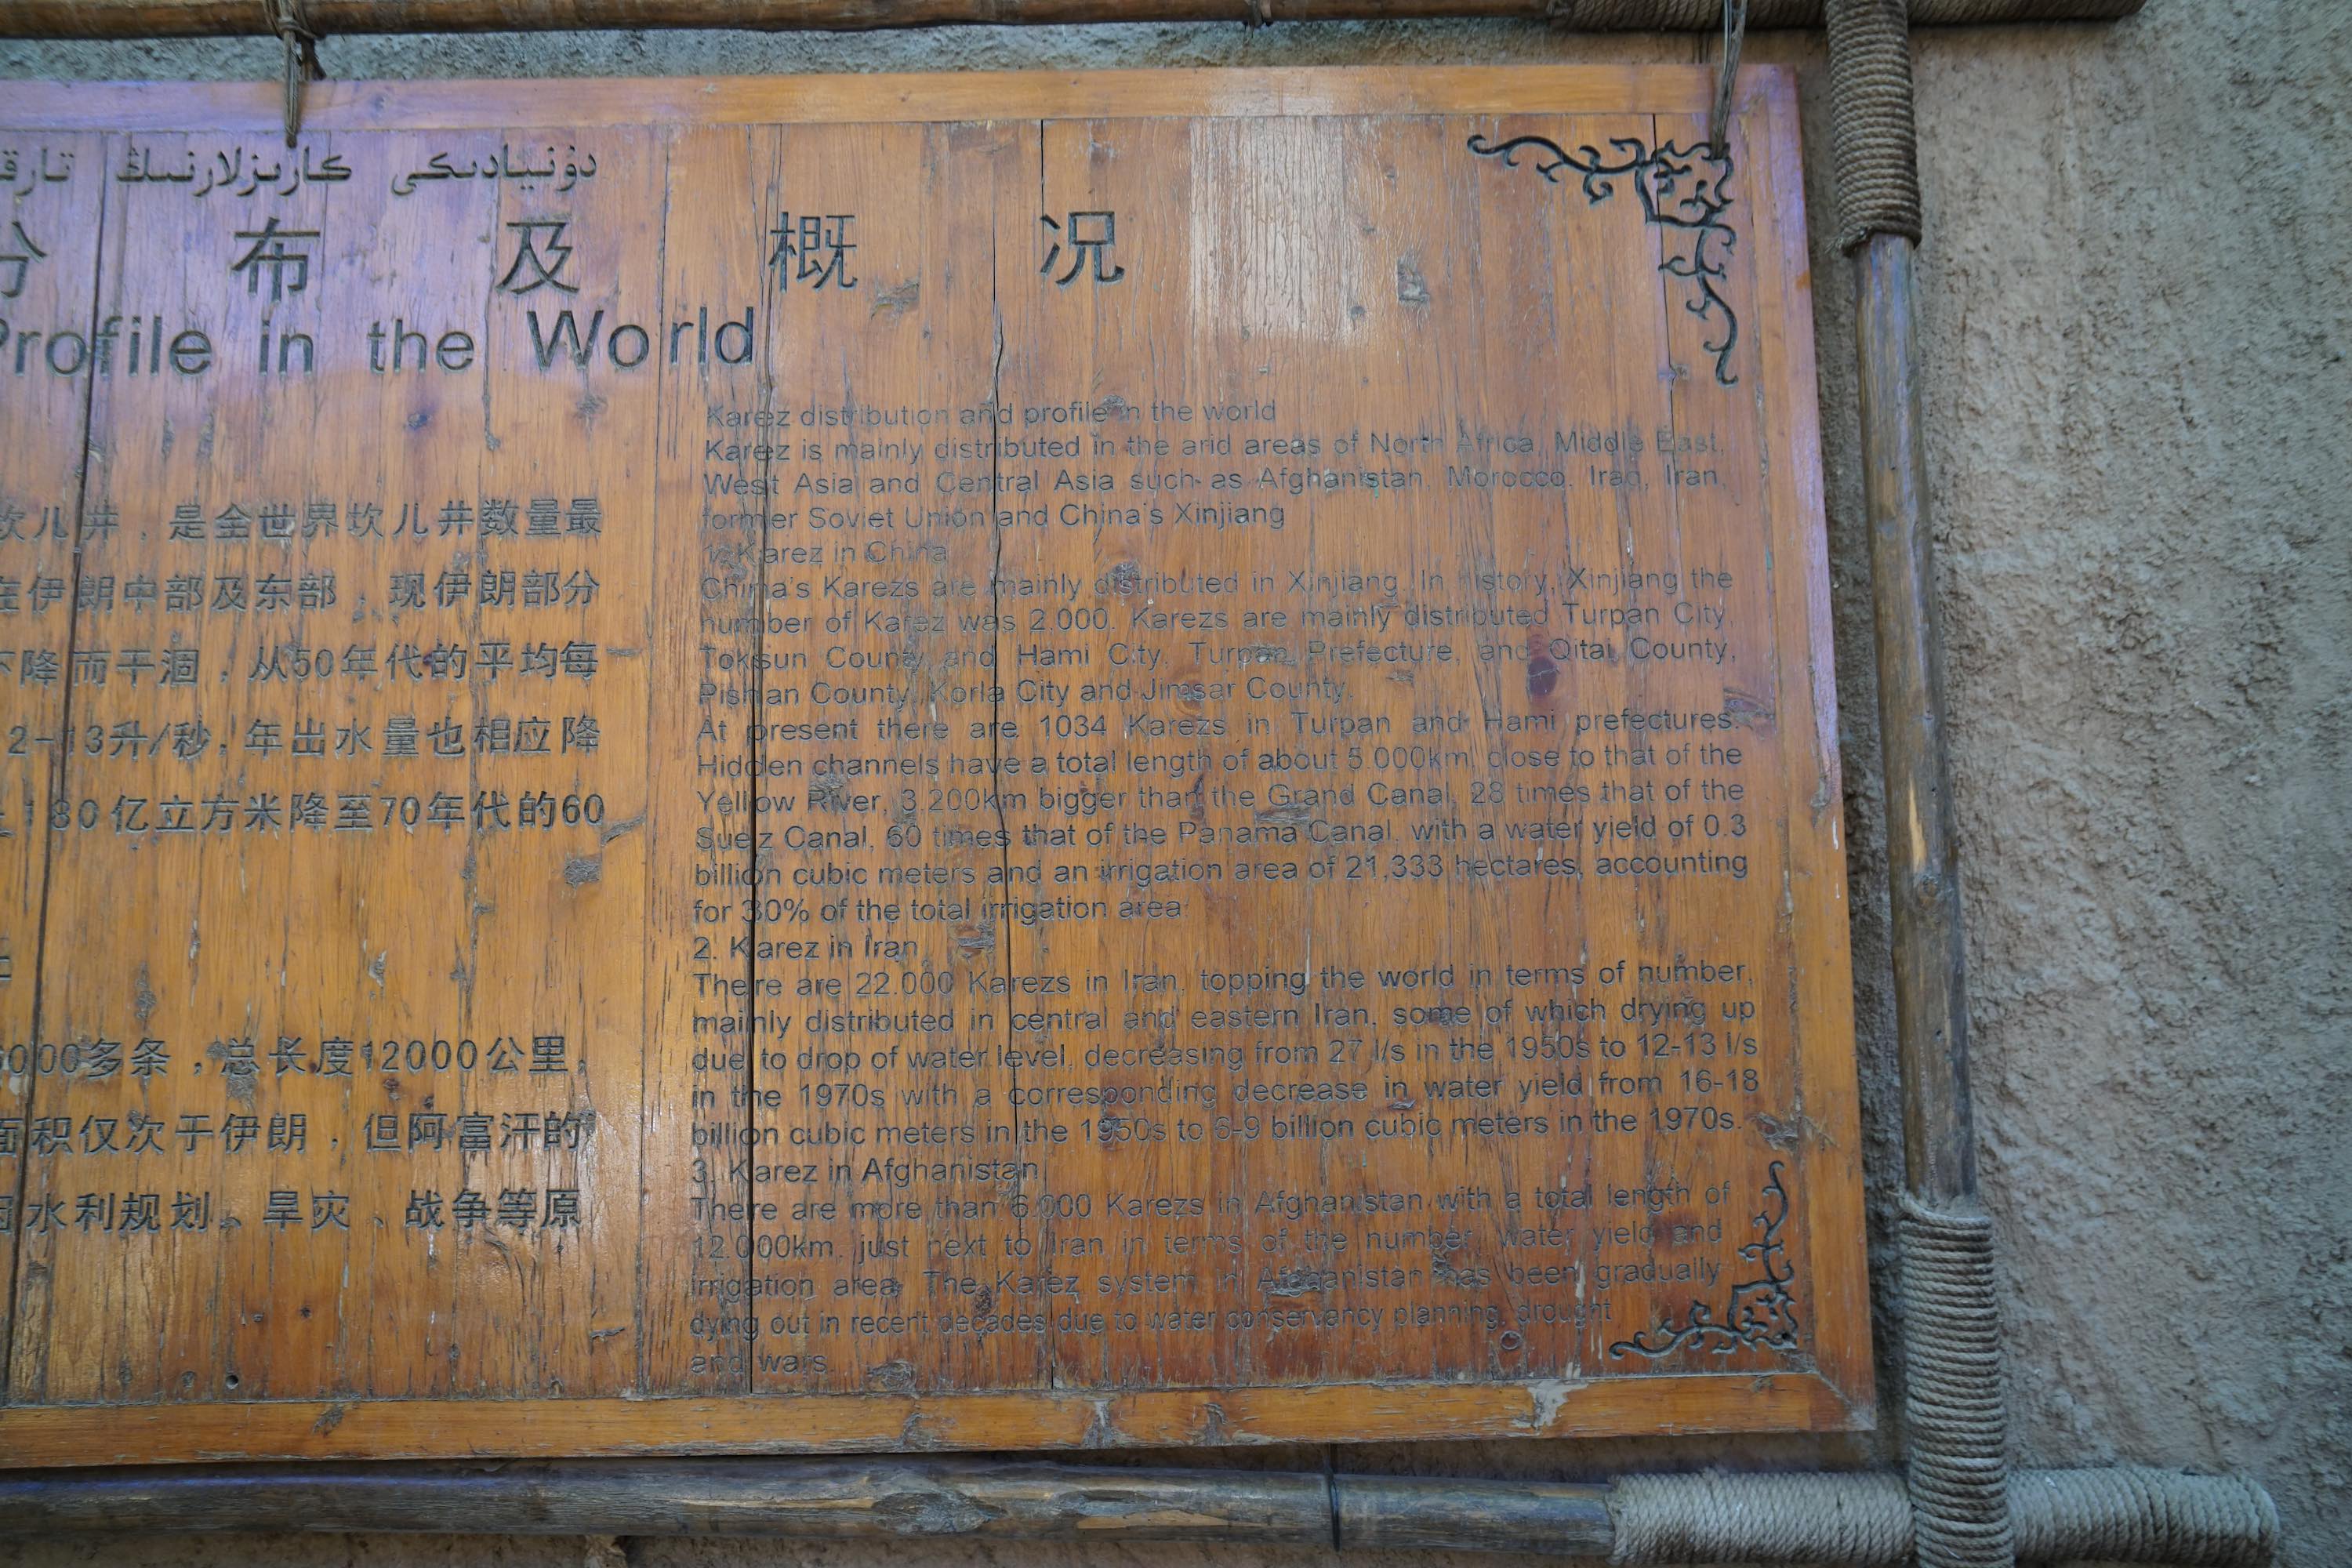 دۇنيادىكى كارىزلارنىڭ تارقى
分布及概况
Profile in the World
坎儿井，是全世界坎儿井数量最
在伊朗中部及东部，现伊朗部分
下降而干涸，从50年代的平均每
12-13升/秒，年出水量也相应降
180亿立方米降至70年代的60
6000多条，总长度12000公里，
面积仅次于伊朗，但阿富汗的
水利规划、旱灾、战争等原
Karez distribution and profile in the world
Karez is mainly distributed in the arid areas of North Africa, Middle East,
West Asia and Central Asia such as Afghanistan, Morocco, Iraq, Iran,
former Soviet Union and China's Xinjiang
1. Karez in China
China's Karezs are mainly distributed in Xinjiang. In history, Xinjiang the
number of Karez was 2,000. Karezs are mainly distributed Turpan City,
Toksun County and Hami City, Turpan Prefecture, and Qitai County,
Pishan County, Korla City and Jimsar County.
At present there are 1034 Karezs in Turpan and Hami prefectures.
Hidden channels have a total length of about 5.000km, close to that of the
Yellow River, 3,200km bigger than the Grand Canal, 28 times that of the
Suez Canal, 60 times that of the Panama Canal, with a water yield of 0.3
billion cubic meters and an irrigation area of 21,333 hectares, accounting
for 30% of the total irrigation area.
2. Karez in Iran
There are 22.000 Karezs in Iran, topping the world in terms of number,
mainly distributed in central and eastern Iran, some of which drying up
due to drop of water level, decreasing from 27 l/s in the 1950s to 12-13 l/s
in the 1970s with a corresponding decrease in water yield from 16-18
billion cubic meters in the 1950s to 6-9 billion cubic meters in the 1970s.
3. Karez in Afghanistan
There are more than 6.000 Karezs in Afghanistan with a total length of
12.000km, just next to Iran in terms of the number, water yield and
irrigation area. The Karez system in Afghanistan has been gradually
dying out in recent decades due to water conservancy planning, drought
and wars.